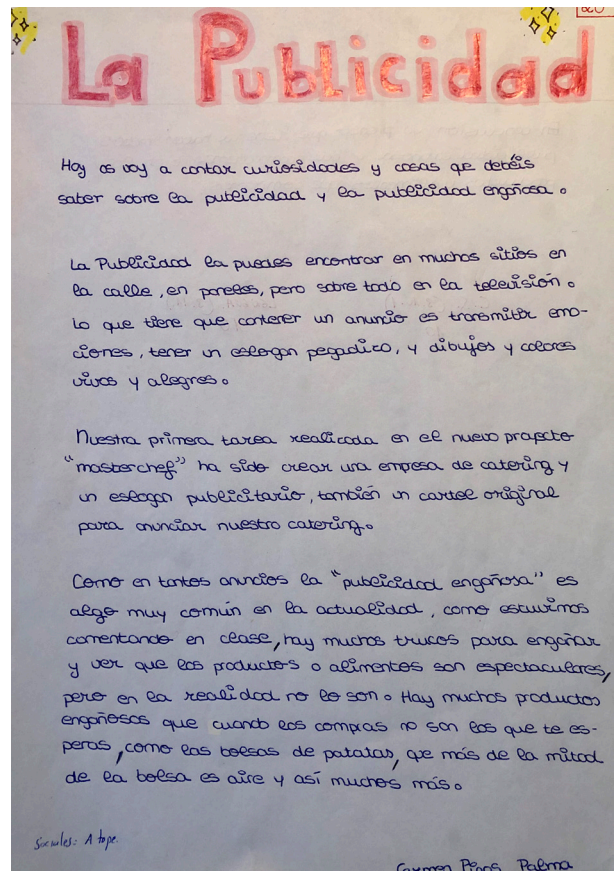 La Publicidad
Hoy os voy a contar curiosidades y cosas qe debéis
saber sobre la publicidad y la publicidad engañosa.
La Publicidad la puedes encontrar en muchos sitios en
la calle, en paneles, pero sobre todo en la televisión.
Lo que tiene que contener un anuncio es transmitir emo-
ciones, tener un eslogan pegadizo, y dibujos y colores
vivos y alegres.
Nuestra primera tarea realizada en el nuevo proyecto
"masterchef" ha sido crear una empresa de catering y
un eslogan publicitario, también un cartel original
para anunciar nuestro catering.
Como en tantos anuncios la "publicidad engañosa" es
algo muy común en la actualidad, como estuvimos
comentando en clase, hay muchos trucos para engañar
y ver que los productos o alimentos son espectaculares,
pero en la realidad no lo son. Hay muchos productos
engañosos que cuando los compras no son los que te es-
peras, como las bolsas de patatas, qe más de la mitad
de la bolsa es aire y así muchos más.
Sociales: A tope.
Carmen Palma